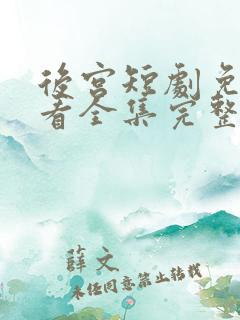 後宮短劇免
看全集完整
薛文
未經同意禁止轉載